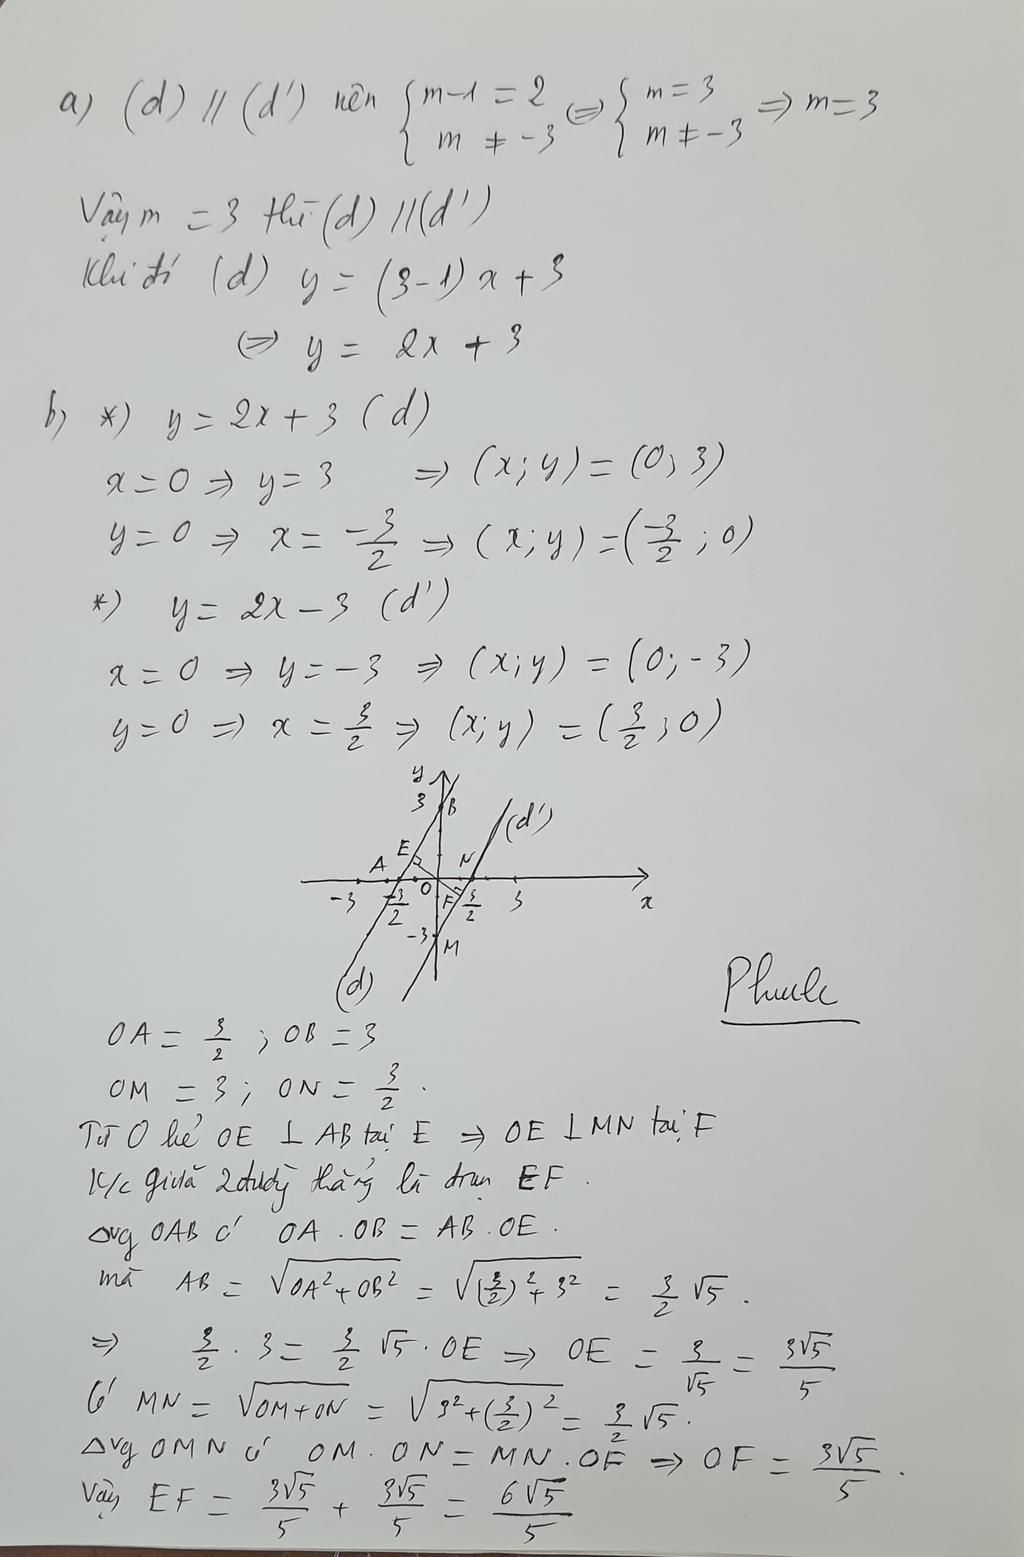 a) (d) // (d') nên { m-1 = 2 ; m ≠ -3 ⇔ { m = 3 ; m ≠ -3 ⇒ m = 3
Vậy m = 3 thì (d) // (d')
Khi đó (d) y = (3-1)x + 3
⇔ y = 2x + 3
b) *) y = 2x + 3 (d)
x = 0 ⇒ y = 3 ⇒ (x; y) = (0; 3)
y = 0 ⇒ x = -3/2 ⇒ (x; y) = (-3/2; 0)
*) y = 2x - 3 (d')
x = 0 ⇒ y = -3 ⇒ (x; y) = (0; -3)
y = 0 ⇒ x = 3/2 ⇒ (x; y) = (3/2; 0)
y
3 B
(d')
A E N
-3 -3/2 O F 3/2 3 x
-3 M
(d)
OA = 3/2 ; OB = 3
OM = 3 ; ON = 3/2 .
Từ O kẻ OE ⊥ AB tại E ⇒ OE ⊥ MN tại F
K/c giữa 2 đường thẳng là đoạn EF .
Δvg OAB có OA . OB = AB . OE .
mà AB = √(OA² + OB²) = √((3/2)² + 3²) = 3/2 √5 .
⇒ 3/2 . 3 = 3/2 √5 . OE ⇒ OE = 3/√5 = 3√5/5
Có MN = √(OM + ON) = √(3² + (3/2)²) = 3/2 √5 .
Δvg OMN có OM . ON = MN . OF ⇒ OF = 3√5/5 .
Vậy EF = 3√5/5 + 3√5/5 = 6√5/5